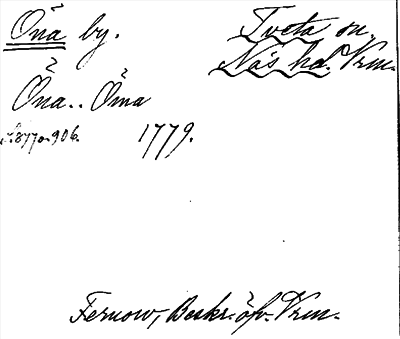 Öna by. Tveta sn.
Näs hd. Vrm.
Öna.. Öma
s. 877 o. 906. 1779.
Fernow, Beskr. öfv. Vrm.